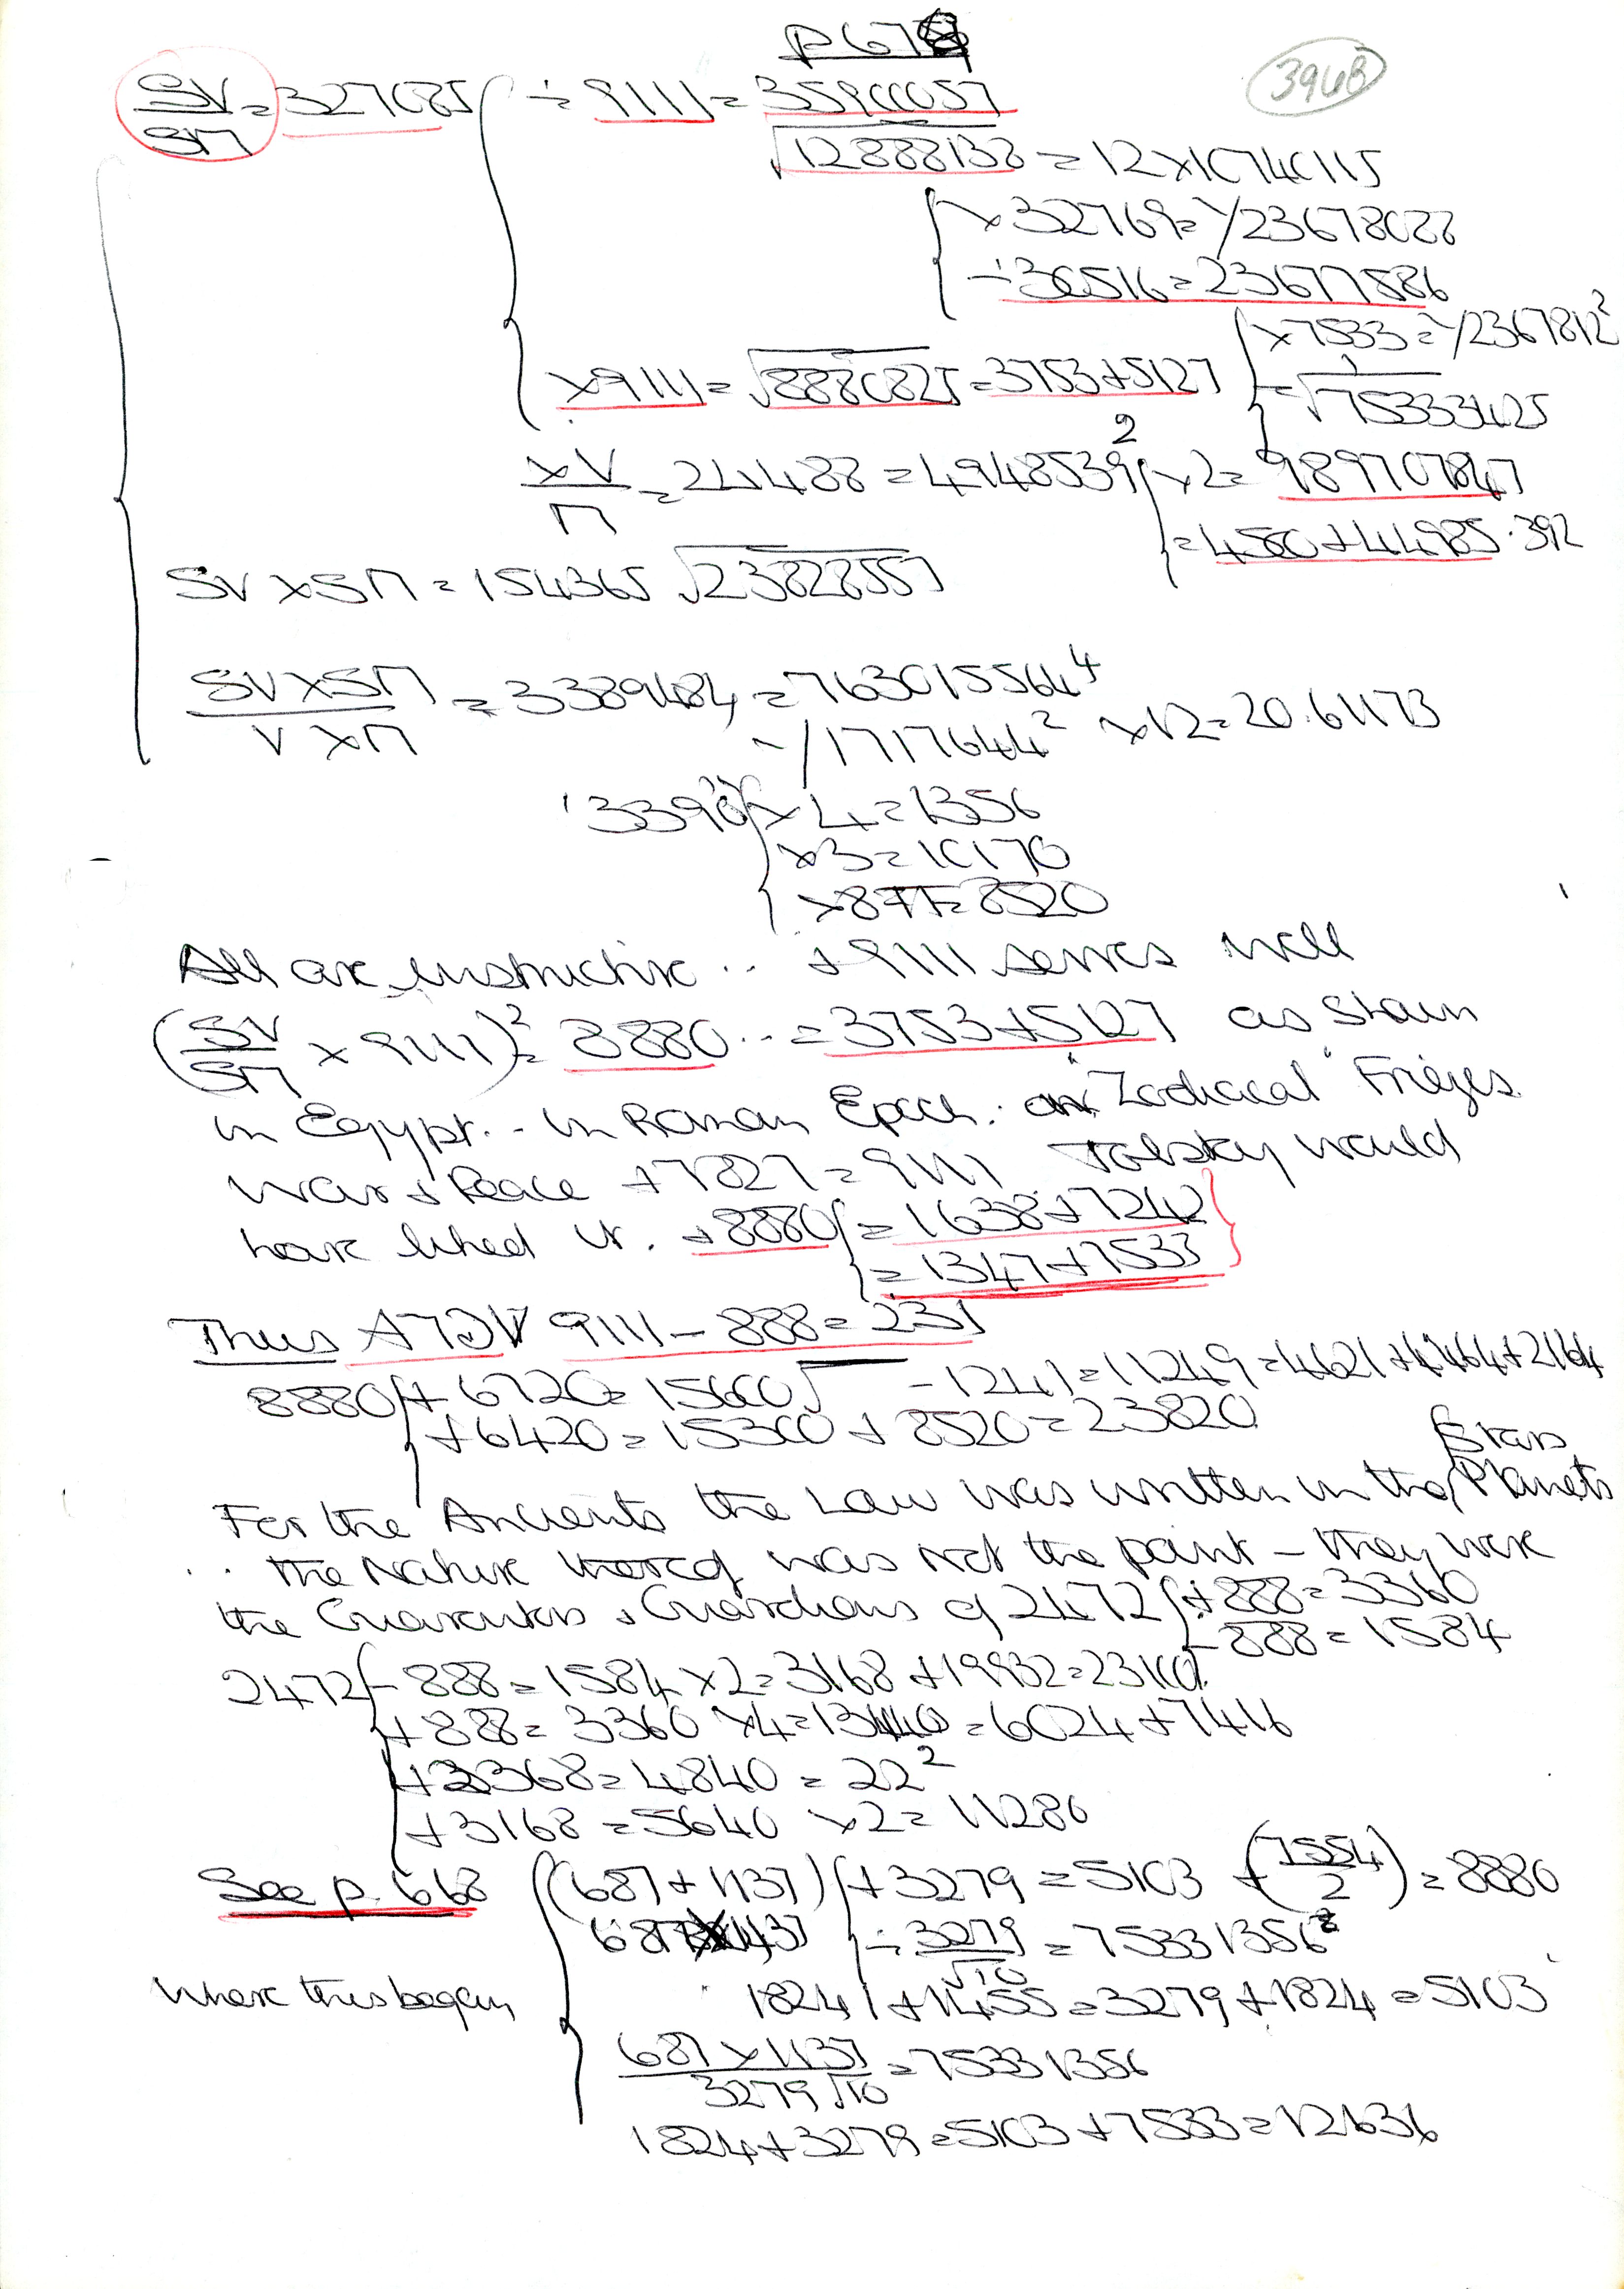 p 67
3968
SV/SΠ = 327685 { ÷ 9111 = 35900057
√12888138 = 12 × 10740115
{ × 32769 = 1/23678088
÷ 30516 = 23677586
× 9111 = √8880825 = 3753 + 5127 { × 7533 = 1/2367812²
= √75333425
× V/Π = 241488 = 4948539² { × 2 = 98970784
= 4580 + 44985.392
SV × SΠ = 154365 √23828557
SV × SΠ / V × Π = 3389484 = 763015564⁴
1/1717644² × 12 = 20.61173
3390 { × 4 = 1356
× 3 = 10170
= 8520
All are instructive .. + 9111 serves well
(SV/SΠ × 9111)² = 8880 .. = 3753 + 5127 as shown
in Egypt .. in Roman Epoch. "Zodiacal" Friezes
War & Peace + 7827 = 9111 Tolstoy would
have liked it. + 8880 { = 1638 + 7242
= 1347 + 7533
Thus 9111 – 888 = 231
8880 { + 6720 = 15600 √ – 1241 = 11249 = 4621 + 4464 + 2164
+ 6420 = 15300 + 8520 = 23820
For the Ancients the Law was written in the { Stars Planets
.. the Nature thereof was not the point – they were
the Guarantors & Guardians of 2472 { + 888 = 3360
– 888 = 1584
2472 { – 888 = 1584 × 2 = 3168 + 19932 = 23100
+ 888 = 3360 × 4 = 13440 = 6024 + 7416
+ 2368 = 4840 = 22²
+ 3168 = 5640 × 2 = 11280
See p. 668 { (687 + 1137) { + 3279 = 5103 + (7554/2) = 8880
687 × 1137 ÷ 3279/√10 = 75331356²
Where this began 1824 { + 1455 = 3279 + 1824 = 5103
687 × 1137 / 3279√10 = 75331356
1824 + 3279 = 5103 + 7533 = 12636